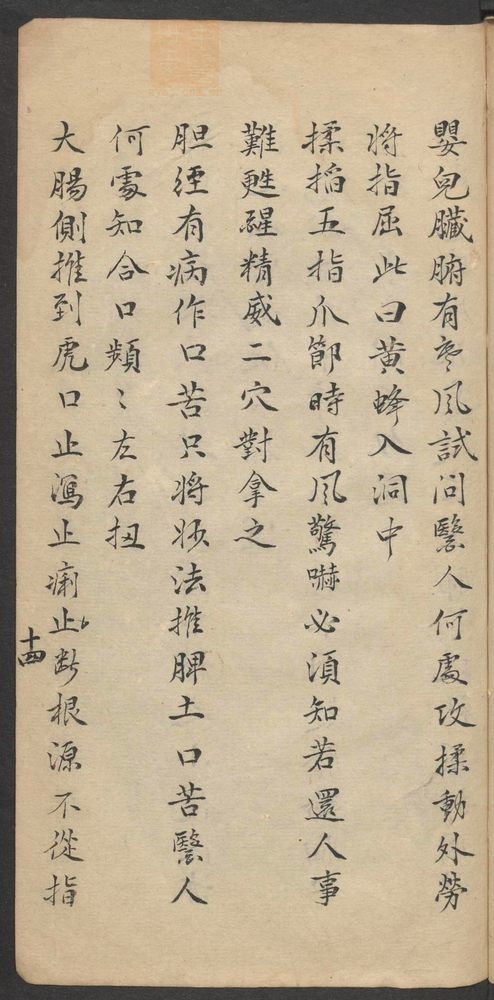 嬰兒臟腑有寒風試問醫人何處攻揉動外勞
將指屈此曰黃蜂入洞中
揉搯五指爪節時有风驚嚇必須知若還人事
難甦醒精威二穴對拿之
胆經有病作口苦只將妙法推脾土口苦醫人
何處知合口頻〻左右扭
大腸側推到虎口止瀉止痢止斷根源不從指
十四